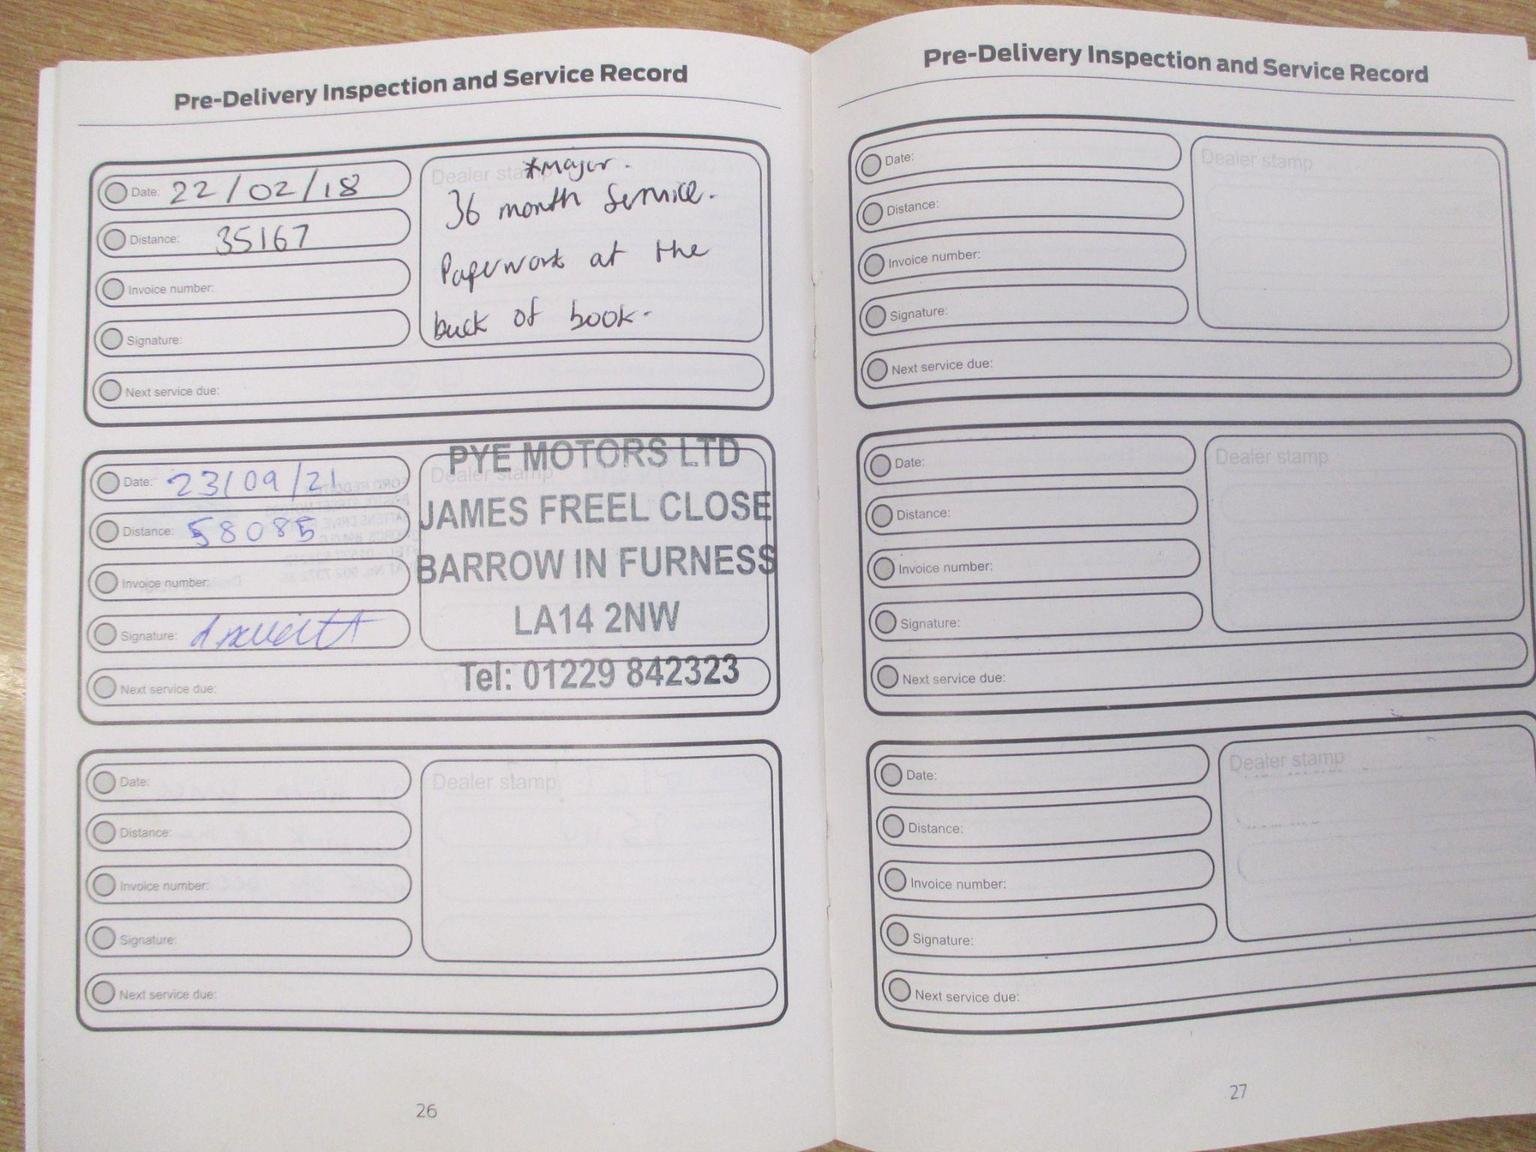 Pre-Delivery Inspection and Service Record
Date: 22/02/18
Distance: 35167
Invoice number:
Signature:
Next service due:
Dealer stamp
*major.
36 month Service.
Paperwork at the
back of book.
Date: 23/09/21
Distance: 58085
Invoice number:
Signature:
Next service due:
Dealer stamp
PYE MOTORS LTD
JAMES FREEL CLOSE
BARROW IN FURNESS
LA14 2NW
Tel: 01229 842323
Date:
Distance:
Invoice number:
Signature:
Next service due:
Dealer stamp
26
Pre-Delivery Inspection and Service Record
Date:
Distance:
Invoice number:
Signature:
Next service due:
Dealer stamp
Date:
Distance:
Invoice number:
Signature:
Next service due:
Dealer stamp
Date:
Distance:
Invoice number:
Signature:
Next service due:
Dealer stamp
27